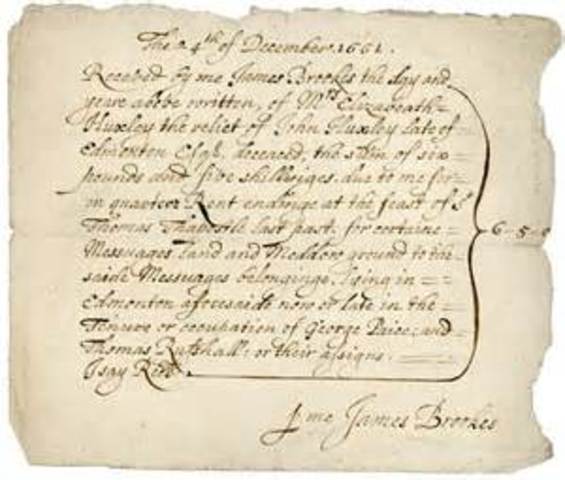 The 24th of December. 1661.
Received by me James Brookes the day and
yeare above written, of Mrs Elizabeath =
Huxley the relict of John Huxley late of =
Edmonton Esqr. deceased, the sum of six =
pounds and five shillinges. due to me for =
quarters Rent endinge at the feast of St
Thomas Thapostle last past. for certaine =
Messuages Land and Meddow ground to the =
saide Messuages belonginge. Lying in = =
Edmonton aforesaide now or late in the =
Tenure or occupation of George Paice: and
Thomas or their assigns.
I say Recd. 6-5-0
me James Brookes